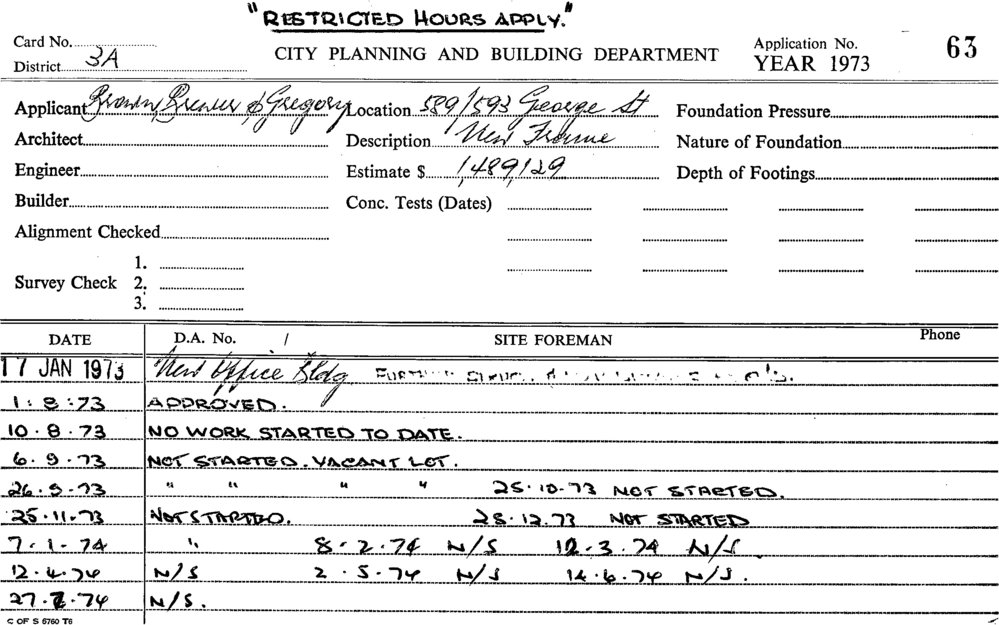 "RESTRICTED HOURS APPLY."
Card No.
District 3A
CITY PLANNING AND BUILDING DEPARTMENT
Application No. 63
YEAR 1973
Applicant Brown, Brewer & Gregory Location 589/593 George St Foundation Pressure
Architect Description New Frame Nature of Foundation
Engineer Estimate $ 1,489,129 Depth of Footings
Builder Conc. Tests (Dates)
Alignment Checked
1.
Survey Check 2.
3.
DATE D.A. No. / SITE FOREMAN Phone
17 JAN 1973 New Office Bldg
1:8:73 APPROVED.
10.8.73 NO WORK STARTED TO DATE.
6.9.73 NOT STARTED. VACANT LOT.
26.9.73 " " " " 25.10.73 NOT STARTED.
25.11.73 NOT STARTED. 28.12.73 NOT STARTED
7.1.74 " 8.2.74 N/S 12.3.74 N/S.
12.4.74 N/S 2.5.74 N/S 14.6.74 N/S.
27.7.74 N/S.
C OF S 6760 T6